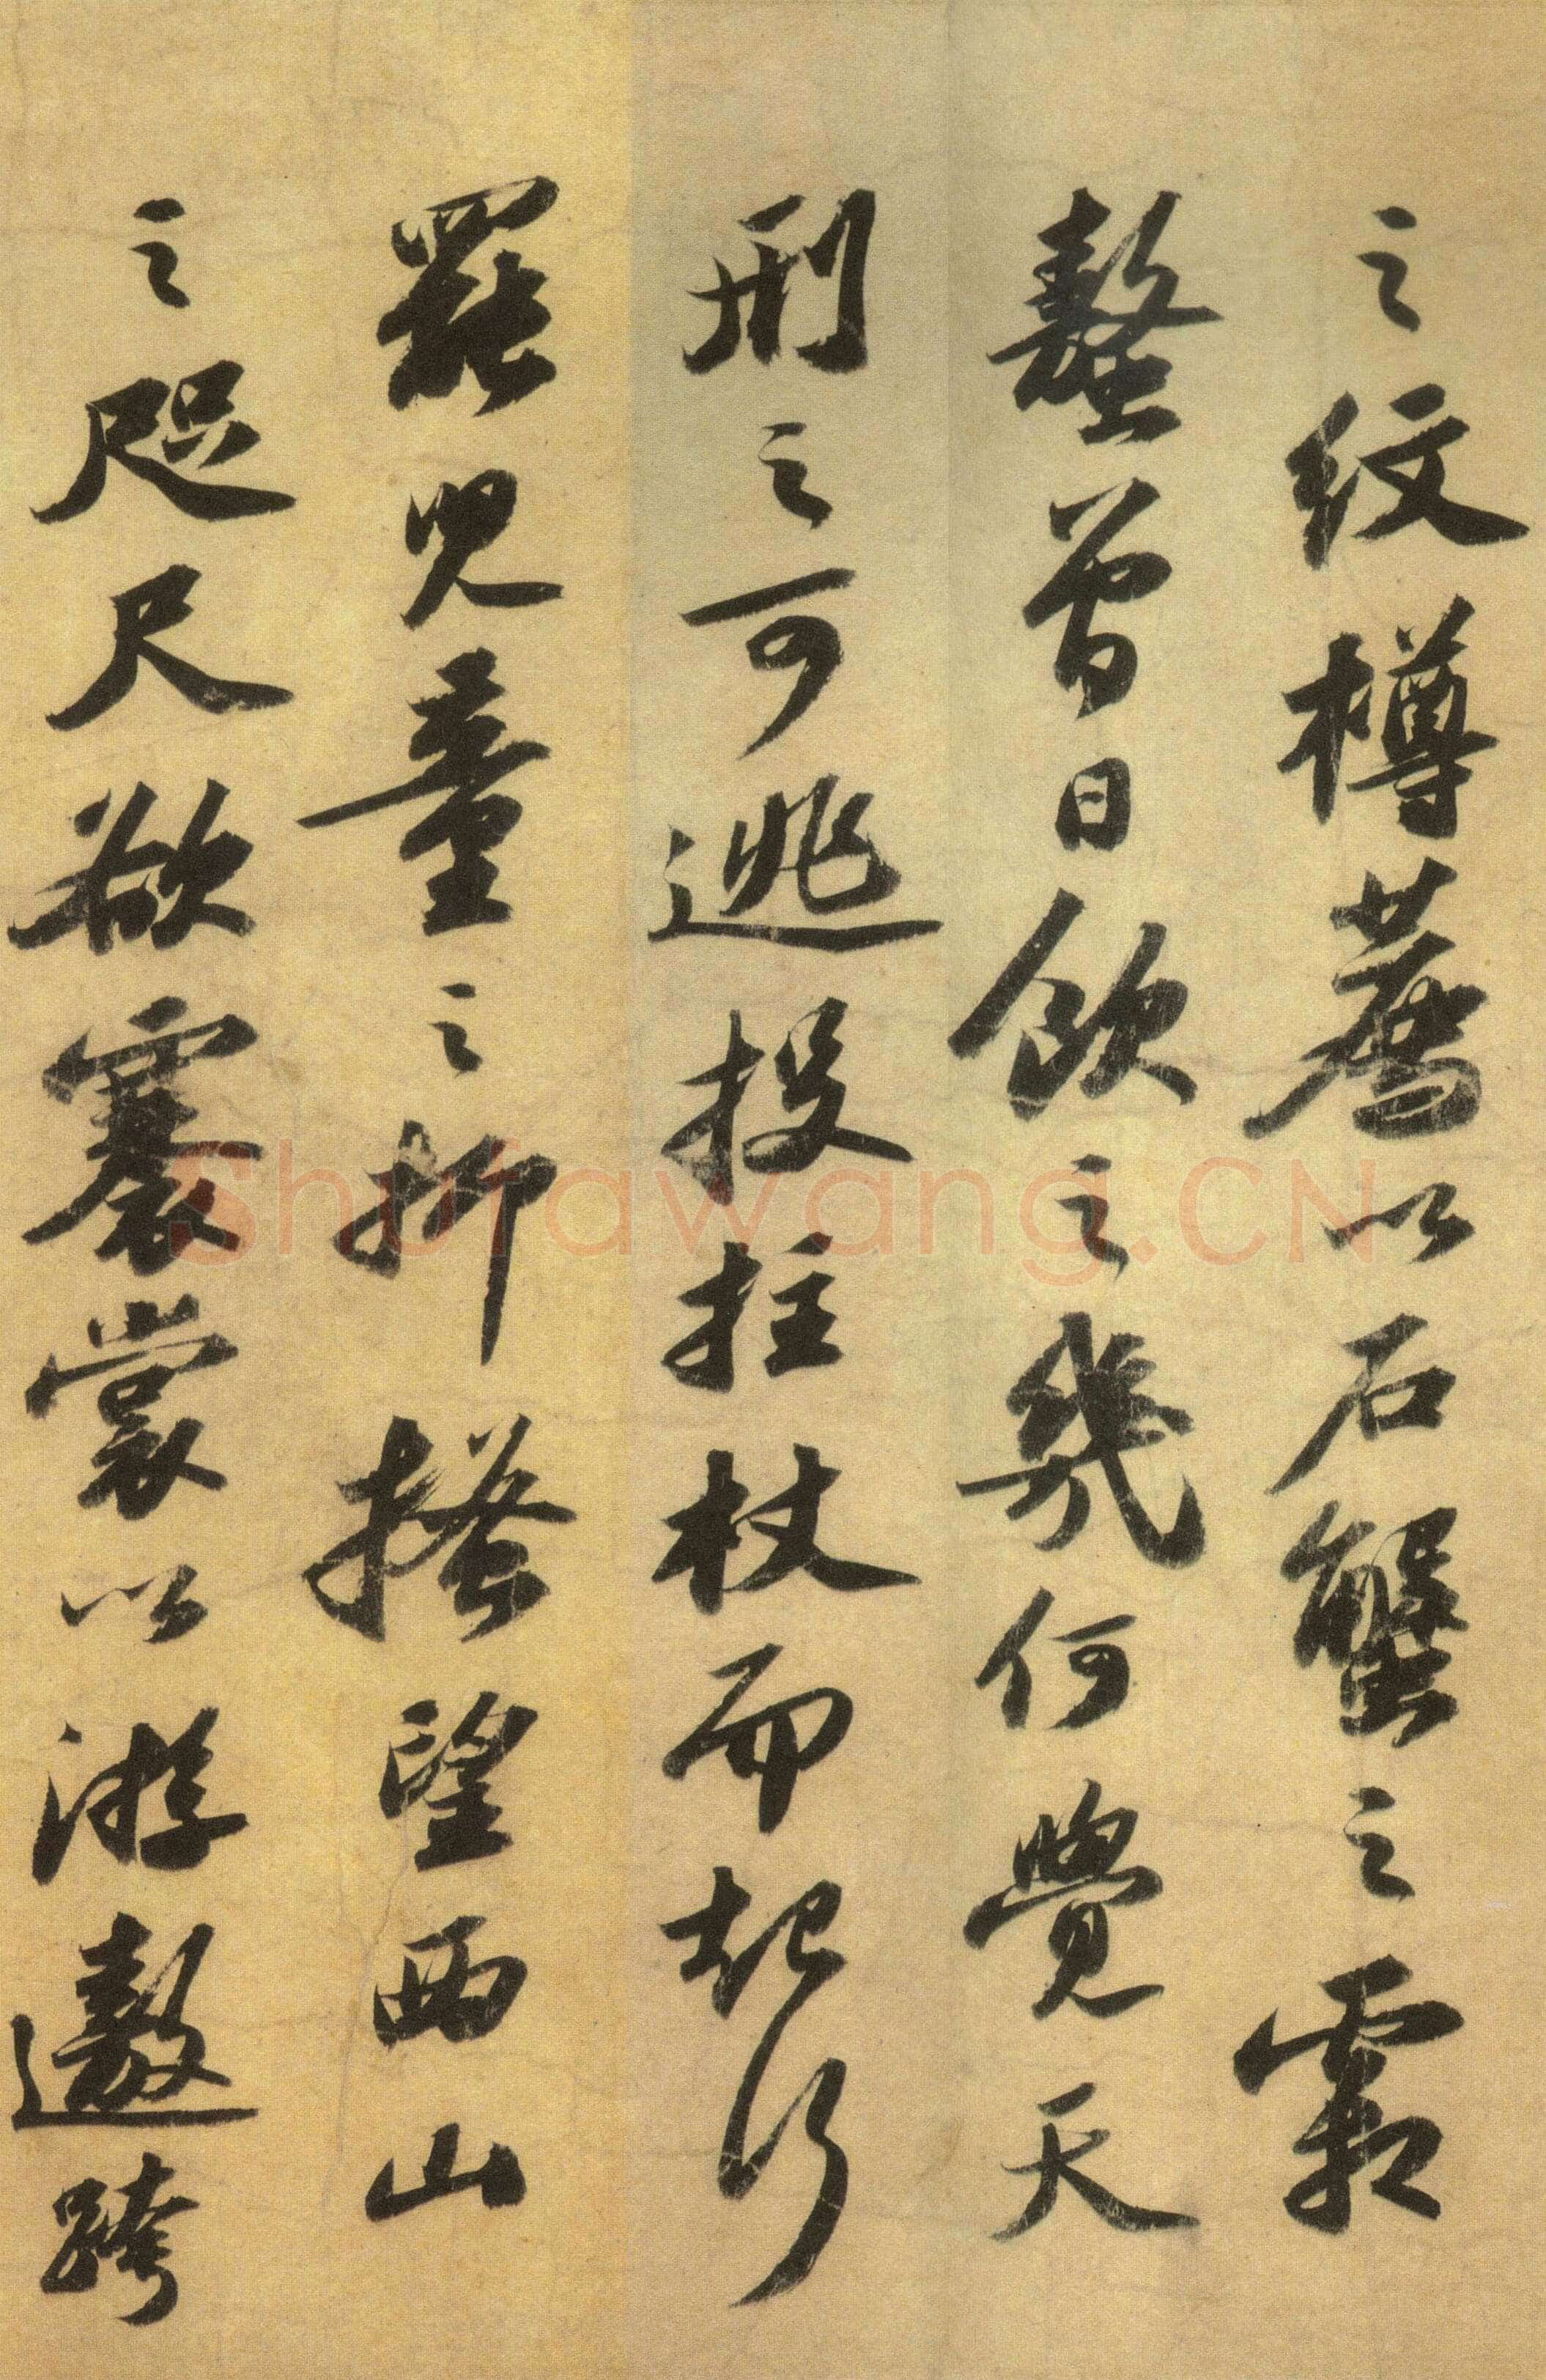 之紋樽薦以石蟹之霜
螯曾日飲之幾何覺天
刑之可逃投拄杖而起行
罷兒童之抑搔望西山
之咫尺欲褰裳以游遨跨
Shufawang.CN